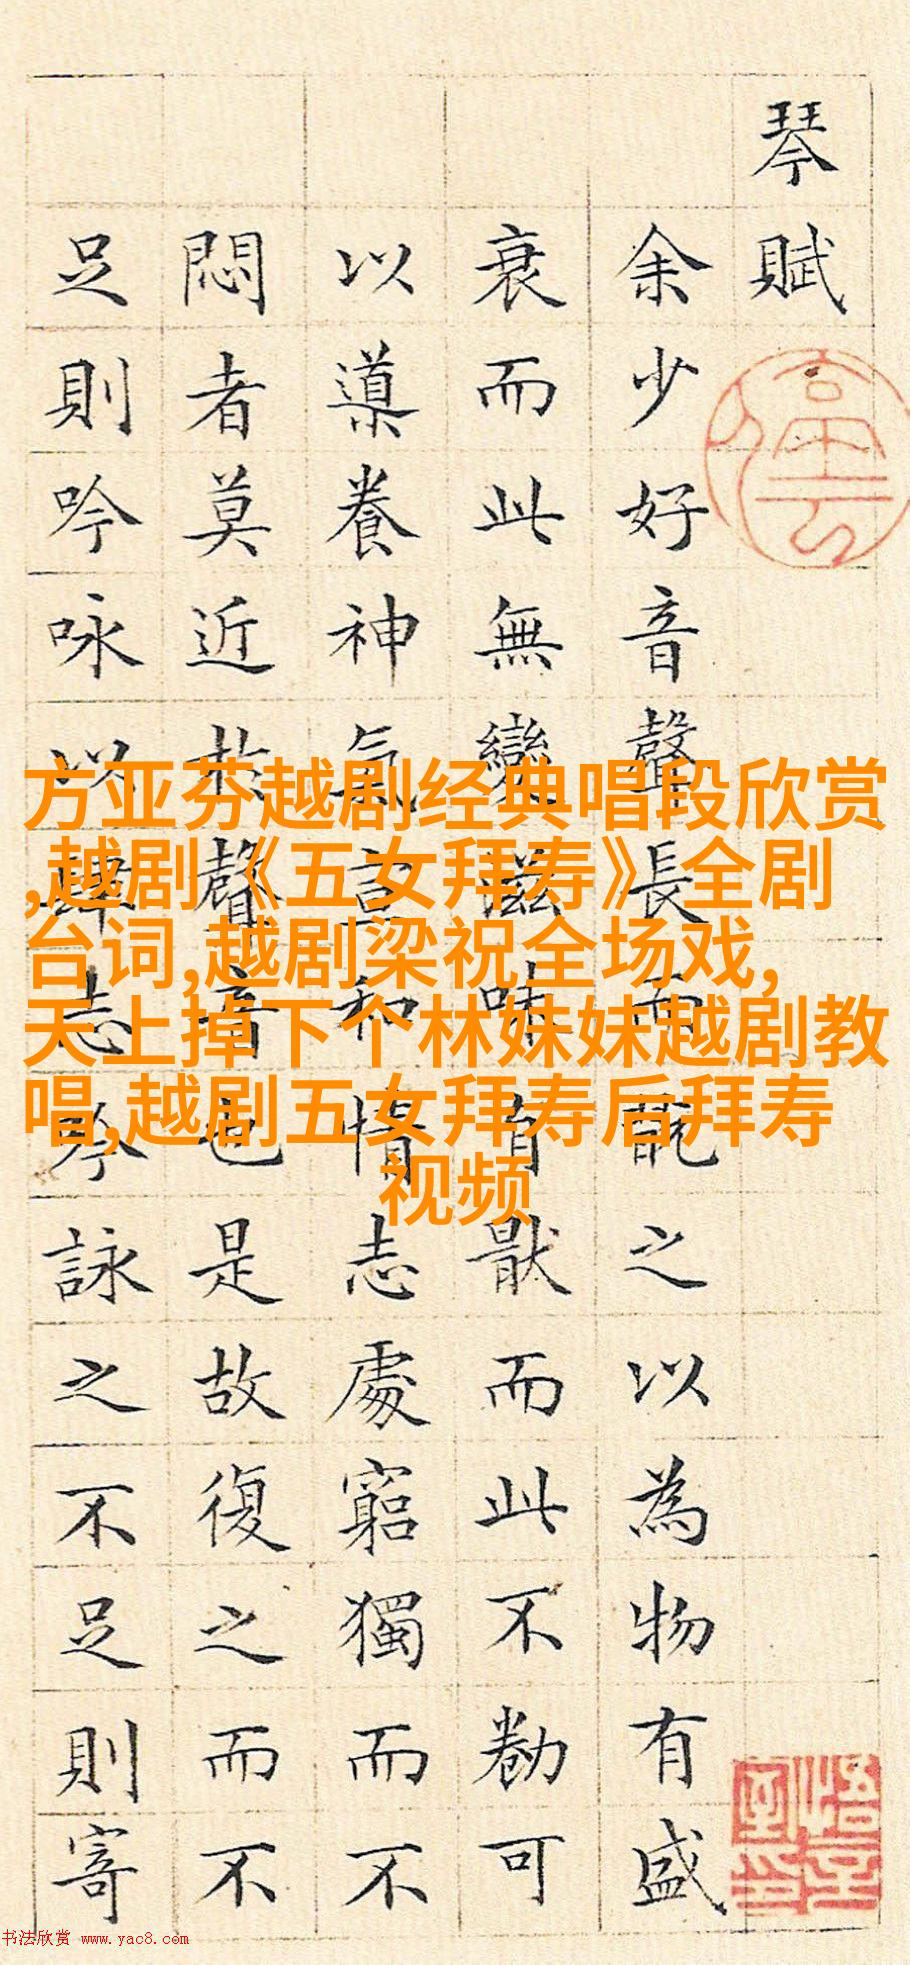 琴賦
余少好音聲長而翫之以為物有盛
衰而此無變滋味有猒而此不勌可
以導養神氣宣和情志處窮獨而不
悶者莫近於聲音也是故復之而不
足則吟咏以肆志吟詠之不足則寄
方亚芬越剧经典唱段欣赏
,越剧《五女拜寿》全剧
台词,越剧梁祝全场戏,
天上掉下个林妹妹越剧教
唱,越剧五女拜寿后拜寿
视频
书法欣赏 www.yac8.com